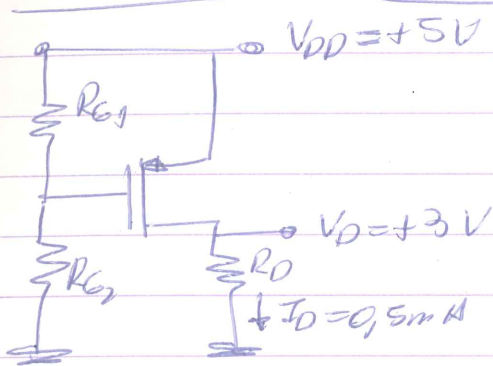 V_DD = +5V
R_G1
V_D = +3 V
R_G2
R_D
↓ I_D = 0,5mA